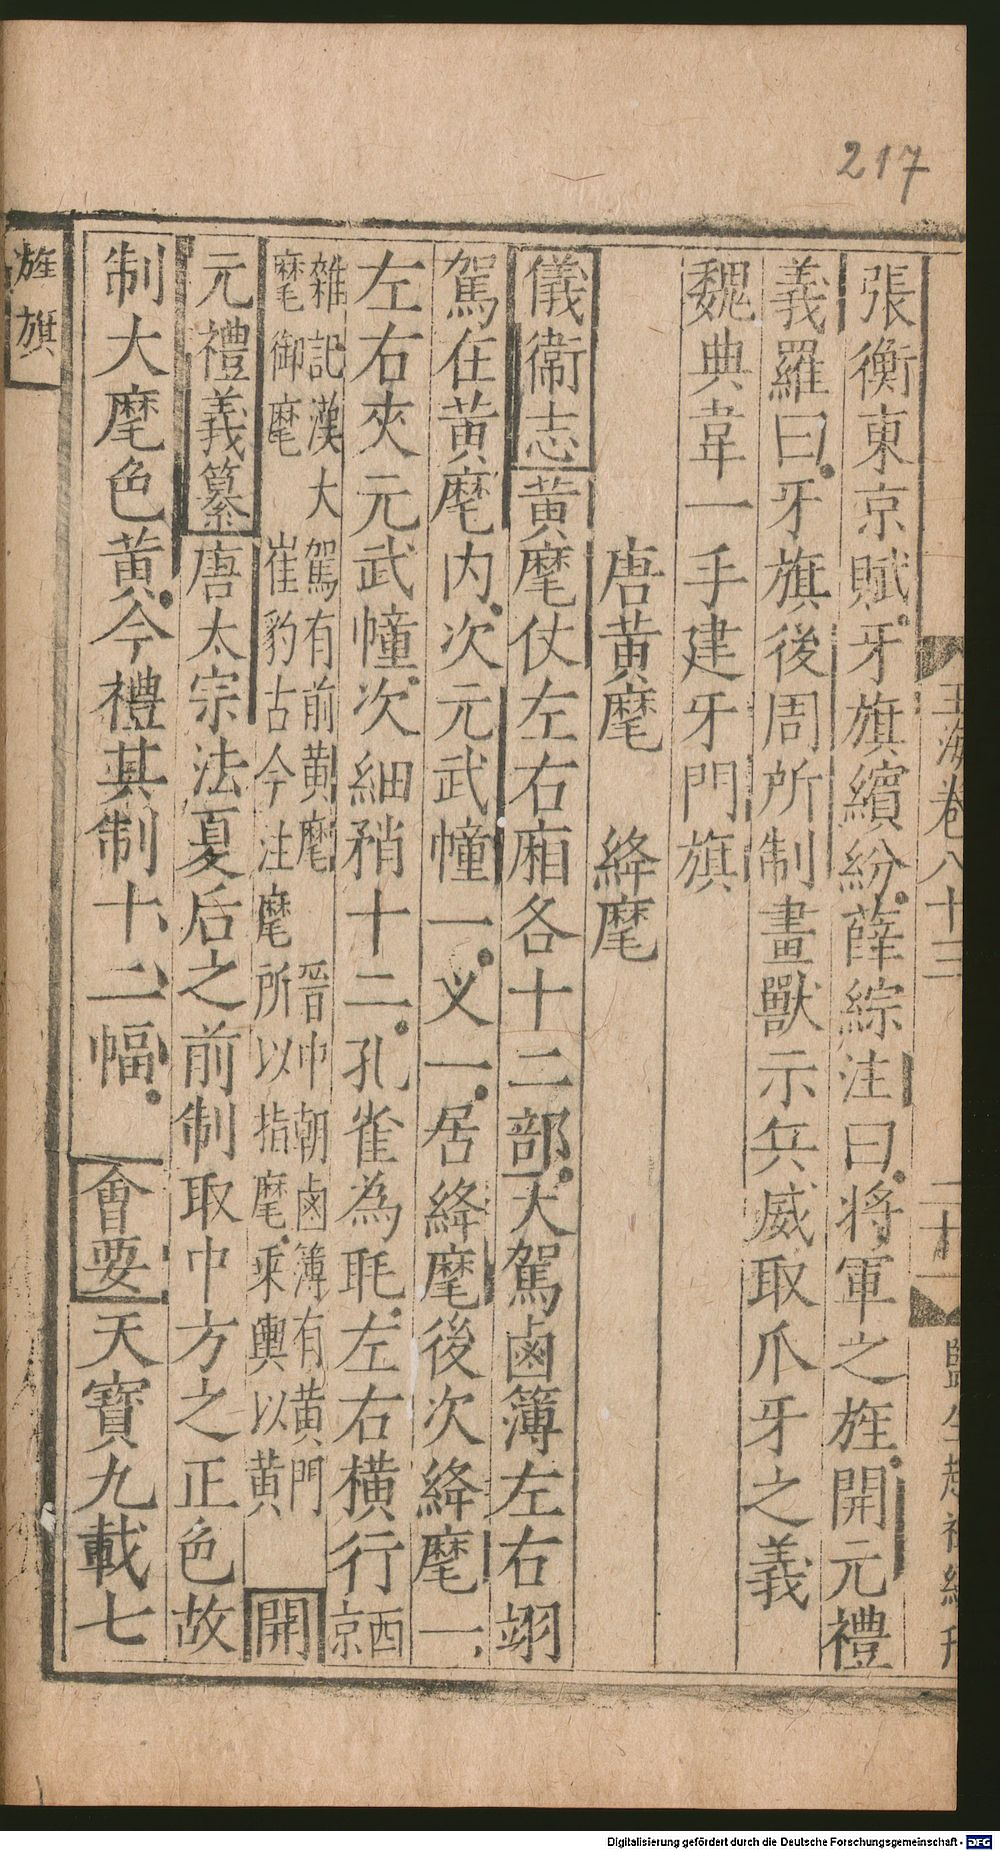 217
玉海卷八十三
二十一
張衡東京賦牙旗繽紛薛綜注曰將軍之旌開元禮
義羅曰牙旗後周所制畫獸示兵威取爪牙之義
魏典韋一手建牙門旗
唐黄麾　絳麾
儀衞志黄麾仗左右廂各十二部大駕鹵簿左右翊
駕在黄麾内次元武幢一义一居絳麾後次絳麾一
左右夾元武幢次細矟十二孔雀為毦左右横行西京
雑記漢大駕有前黄麾　晉中朝鹵簿有黄門
麾御麾　崔豹古今注麾所以指麾乘輿以黄
開
元禮義纂唐太宗法夏后之前制取中方之正色故
制大麾色黄今禮其制十二幅會要天寶九載七
旌旗
Digitalisierung gefördert durch die Deutsche Forschungsgemeinschaft - DFG